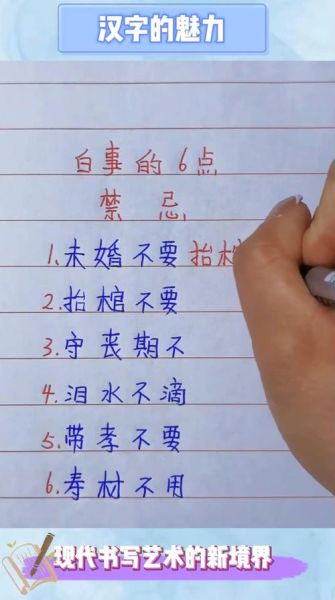 汉字的魅力
白事的6点
禁忌
1.未婚不要抬
2.抬棺不要
3.守丧期不
4.泪水不滴
5.带孝不要
6.寿材不用
现代书写艺术的新境界